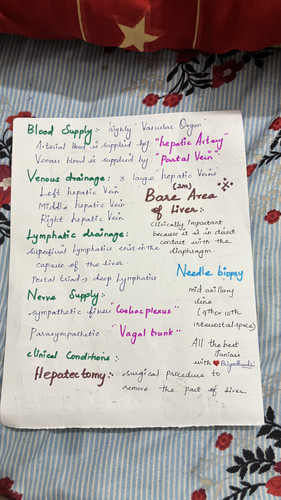 Blood Supply:- highly "Vascular Organ"
Arterial blood is supplied by "hepatic Artery"
Venous blood is supplied by "Portal Vein"
Venous drainage: 3 large "hepatic Veins"
Left hepatic Vein
Middle hepatic Vein
Right hepatic Vein
(2m)
Bare Area
of Liver:-
clinically Important
because it is in direct
contact with the
diaphragm
Lymphatic drainage:
Superficial Lymphatics exist in the
capsule of the liver
Portal triad → deep Lymphatics
Needle biopsy
mid axillary
line
(9th or 10th
intercostal space)
Nerve Supply:-
Sympathetic fibres "Coeliac plexus"
Parasympathetic "Vagal trunk"
All the best
Juniors
with ❤
Clinical Conditions:-
Hepatectomy:- surgical procedure to
remove the part of liver